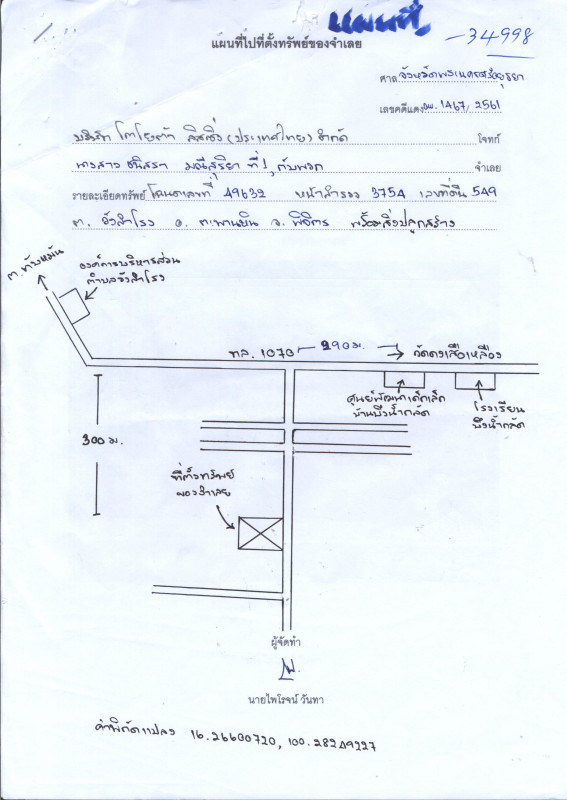 แผนที่
-34998
แผนที่ไปที่ตั้งทรัพย์ของจำเลย
ศาล จังหวัดพระนครศรีอยุธยา
เลขคดีแดง ผบ. 1467/2561
บริษัท โตโยต้า ลิสซิ่ง (ประเทศไทย) จำกัด โจทก์
นางสาว ธนิสรา มณีสุริยา ที่ 1, กับพวก จำเลย
รายละเอียดทรัพย์ โฉนดเลขที่ 49632 หน้าสำรวจ 3754 เลขที่ดิน 549
ต. วังสำโรง อ. ตะพานหิน จ. พิจิตร พร้อมสิ่งปลูกสร้าง
ต. ทับหมัน
องค์การบริหารส่วน
ตำบลวังสำโรง
ทล. 1070
290 ม.
วัดดงเสือเหลือง
ศูนย์พัฒนาเด็กเล็ก
บ้านบึงน้ำกลัด
โรงเรียน
บึงน้ำกลัด
300 ม.
ที่ตั้งทรัพย์
ของจำเลย
ผู้จัดทำ
นายไพโรจน์ วันทา
ค่าพิกัดแปลง 16.26600720, 100.28249227